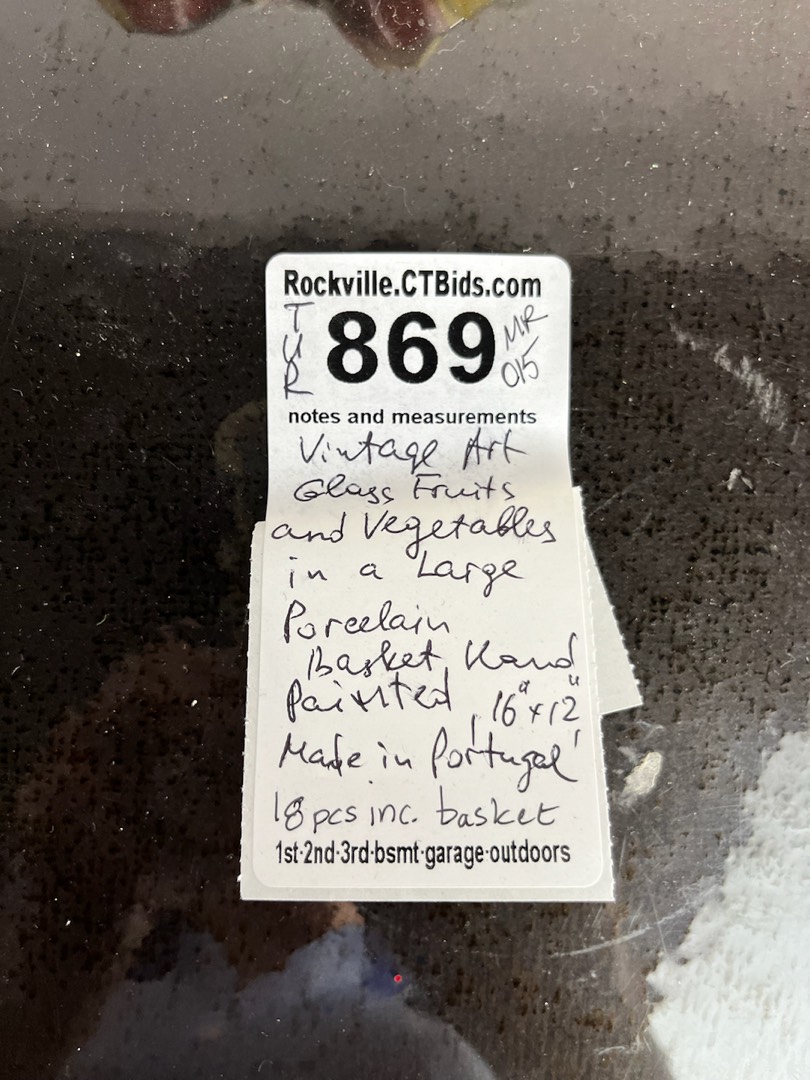 Rockville.CTBids.com
TUR 869 MR 015
notes and measurements
Vintage Art
Glass Fruits
and Vegetables
in a Large
Porcelain
Basket, Hand
Painted, 16"x12"
Made in Portugal
18 pcs inc. basket
1st·2nd·3rd·bsmt·garage·outdoors